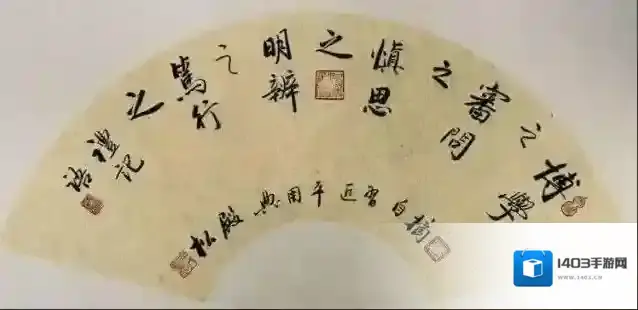 博學
之
審問
之
慎思
之
明辨
之
篤行
之
禮記
語
摘自習近平用典
殿松
1403手游网
WWW.1403.CN